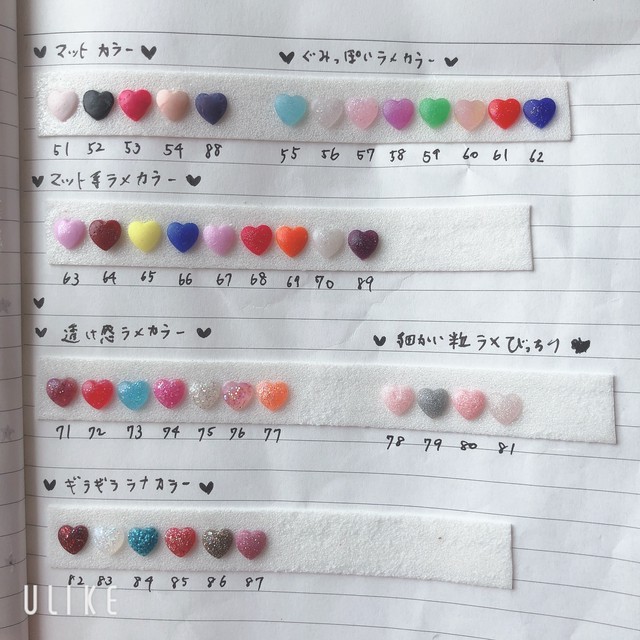 ♥ マットカラー ♥
♥ ぐみっぽいラメカラー ♥
51 52 53 54 88
55 56 57 58 59 60 61 62
♥ マット系ラメカラー ♥
63 64 65 66 67 68 69 70 89
♥
♥ 透け感ラメカラー ♥
♥ 細かい粒ラメびっちり ♥
71 72 73 74 75 76 77
78 79 80 81
♥ ギラギララメカラー ♥
82 83 84 85 86 87
ULIKE